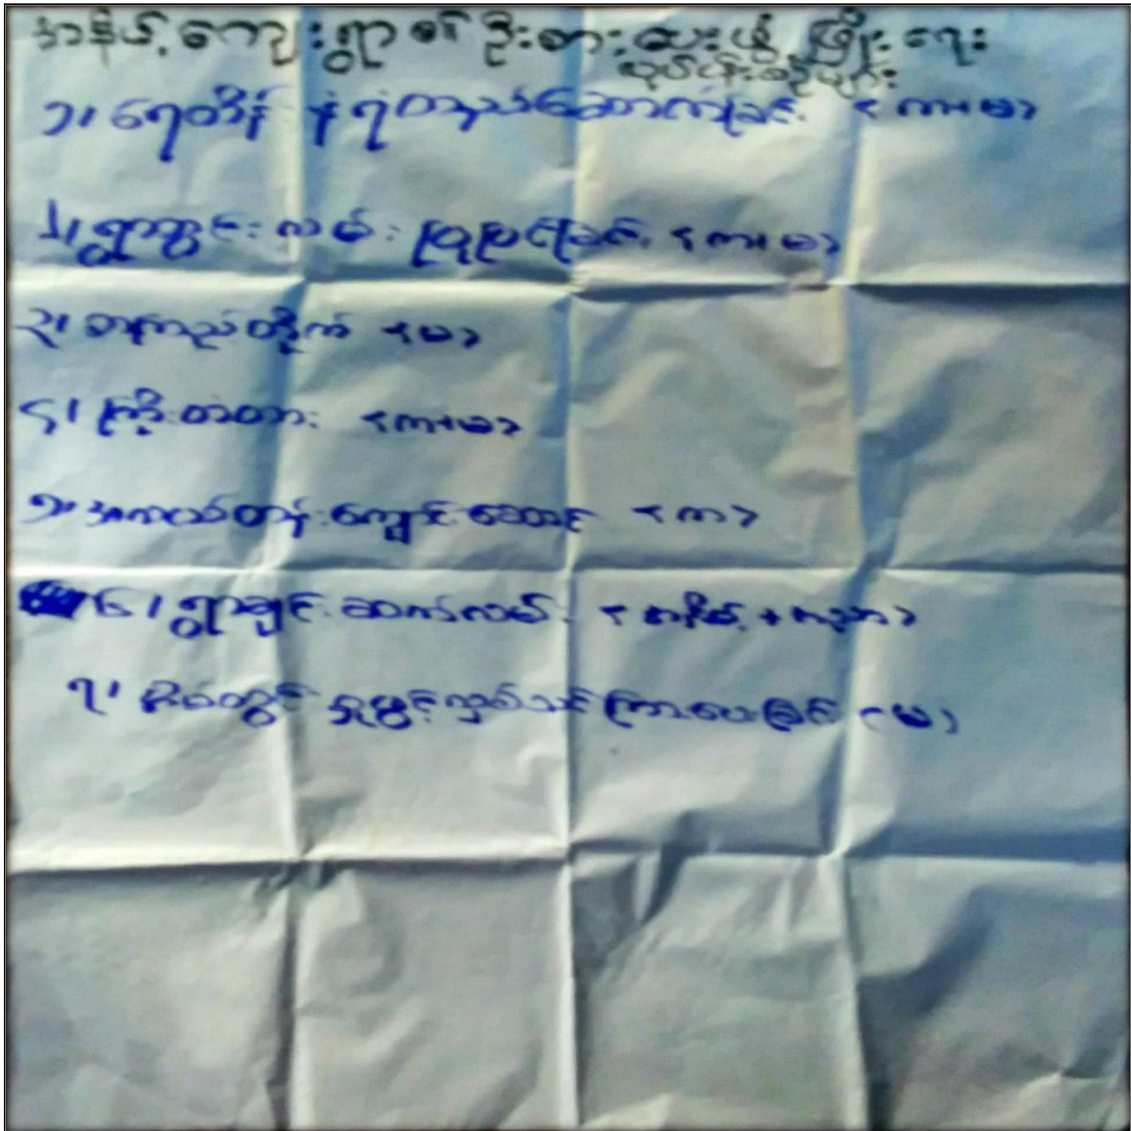 အနိမ့်ကျေးရွာ၏ ဦးစားပေးဖွံ့ဖြိုးရေး
လုပ်ငန်းစဉ်များ
၁၊ ရေထိန်းနံရံတည်ဆောက်ခြင်း (က+မ)
၂၊ ရွာတွင်းလမ်း ပြုပြင်ခြင်း (က+မ)
၃၊ စာကြည့်တိုက် (မ)
၄၊ ကြိုးတံတား (က+မ)
၅၊ အလယ်တန်းကျောင်းဆောင် (က)
၆၊ ရွာချင်းဆက်လမ်း (အနိမ့် +
၇၊ ကြားပေးခြင်း (မ)